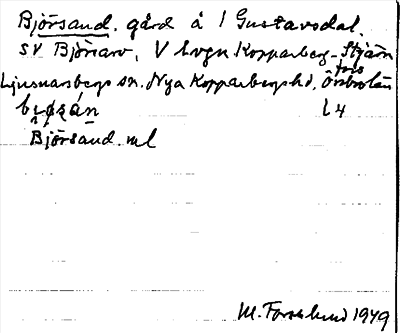 Björsand. gård å 1 Gustavsdal.
SV Björnarv, V bvgn Kopparberg - Stjärn
fors
Ljusnarsbergs sn. Nya Kopparbergs hd. Örebro län
L4
Björsand. ml
M. Forslund 1949